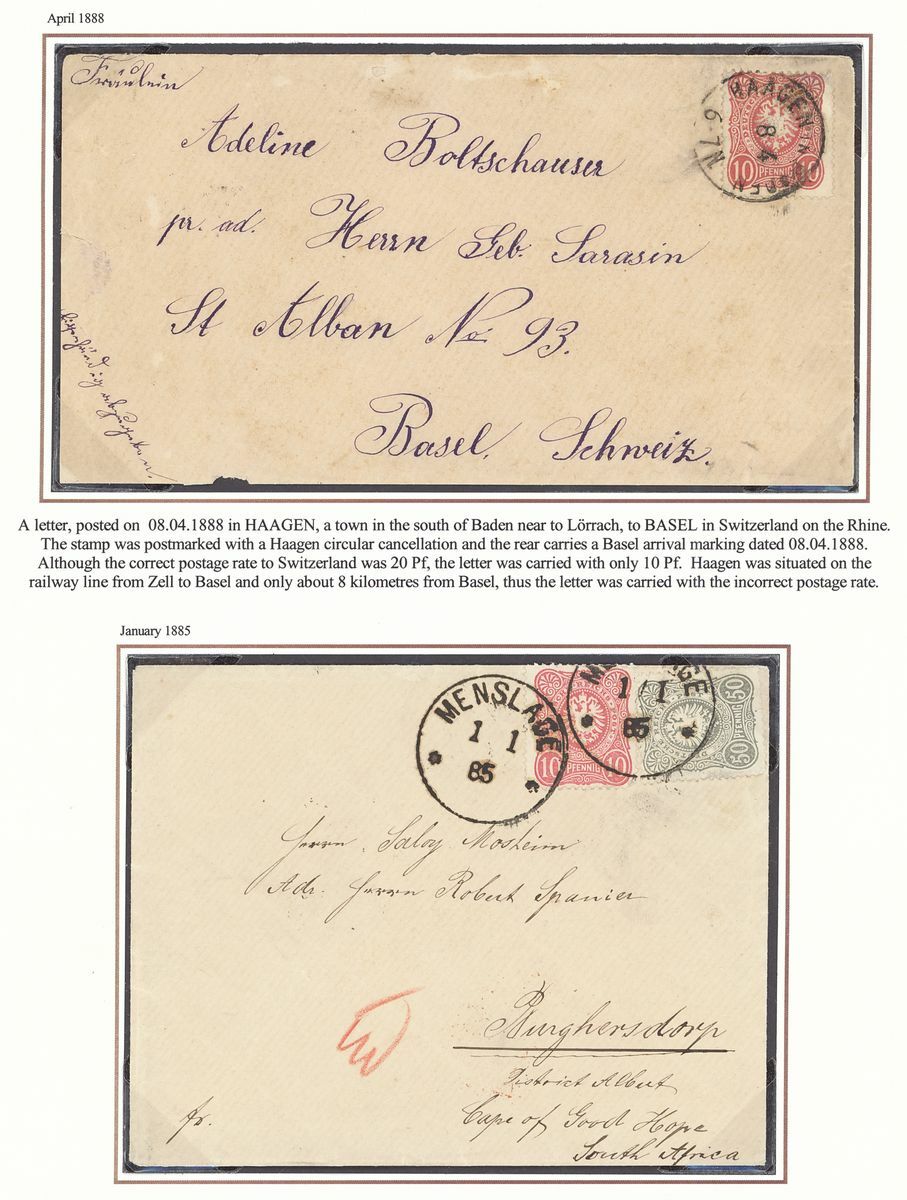 April 1888
Fräulein
Adeline Boltschauser
pr. ad. Herrn Geb. Sarasin
St Alban No. 93.
Basel, Schweiz.
HAAGEN IN BADEN
8 4
N 7-6
10 PFENNIG 10
A letter, posted on 08.04.1888 in HAAGEN, a town in the south of Baden near to Lörrach, to BASEL in Switzerland on the Rhine.
The stamp was postmarked with a Haagen circular cancellation and the rear carries a Basel arrival marking dated 08.04.1888.
Although the correct postage rate to Switzerland was 20 Pf, the letter was carried with only 10 Pf. Haagen was situated on the
railway line from Zell to Basel and only about 8 kilometres from Basel, thus the letter was carried with the incorrect postage rate.
January 1885
MENSLAGE
1 1
85
10 PFENNIG 10
MENSLAGE
1 1
85
50 PFENNIG 50
Herrn Saloy Mosheim
Adr. Herrn Robert Spanier
Burghersdorp
District Albert
Cape of Good Hope
South Africa
fr.